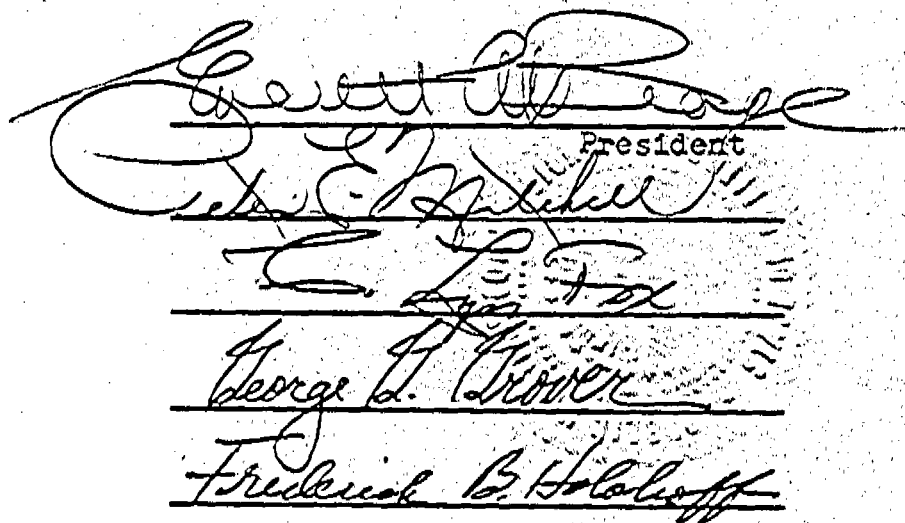 Everett C. McKeage
President
Peter E. Mitchell
C. Lyn Fox
George G. Grover
Frederick B. Holoboff